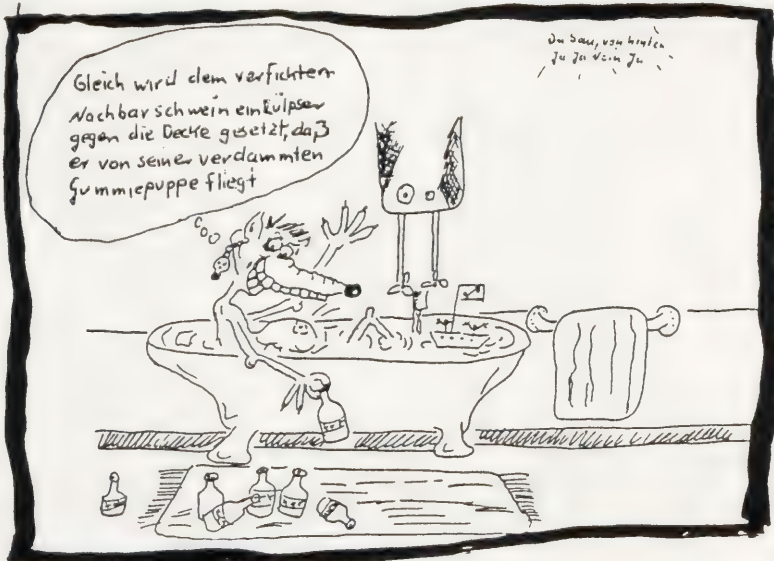 Gleich wird dem verfickten
Nachbarschwein ein Rülpser
gegen die Decke gesetzt, daß
er von seiner verdammten
Gummiepuppe fliegt
Du Sau, von hinten
Ja Ja Nein Ja